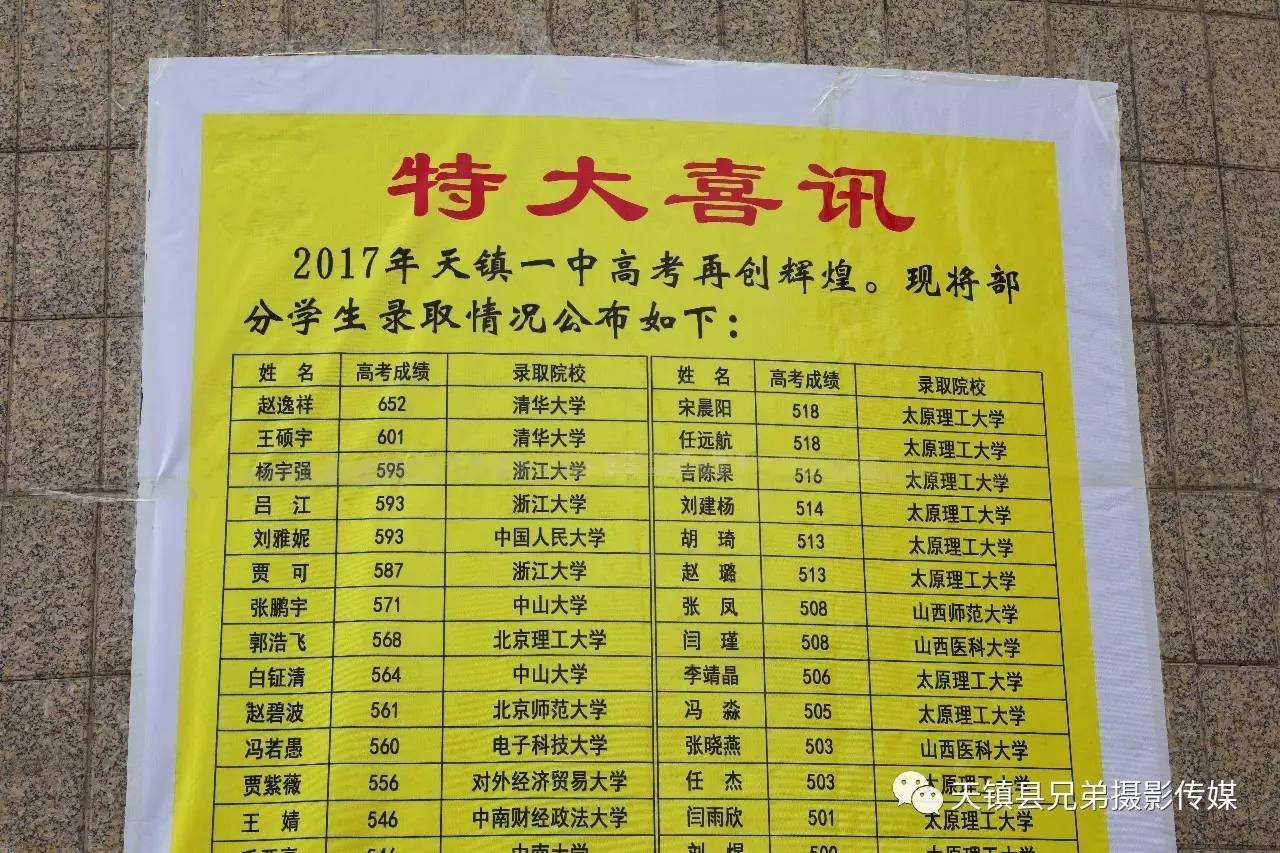 特大喜讯
2017年天镇一中高考再创辉煌。现将部
分学生录取情况公布如下：
姓 名 高考成绩 录取院校 姓 名 高考成绩 录取院校
赵逸祥 652 清华大学 宋晨阳 518 太原理工大学
王硕宇 601 清华大学 任远航 518 太原理工大学
杨宇强 595 浙江大学 吉陈果 516 太原理工大学
吕 江 593 浙江大学 刘建杨 514 太原理工大学
刘雅妮 593 中国人民大学 胡 琦 513 太原理工大学
贾 可 587 浙江大学 赵 璐 513 太原理工大学
张鹏宇 571 中山大学 张 凤 508 山西师范大学
郭浩飞 568 北京理工大学 闫 瑾 508 山西医科大学
白钲清 564 中山大学 李靖晶 506 太原理工大学
赵碧波 561 北京师范大学 冯 淼 505 太原理工大学
冯若愚 560 电子科技大学 张晓燕 503 山西医科大学
贾紫薇 556 对外经济贸易大学 任 杰 503 太原理工大学
王 婧 546 中南财经政法大学 闫雨欣 501 太原理工大学
546 中南大学 刘 煜 500 太原理工大学
天镇县兄弟摄影传媒